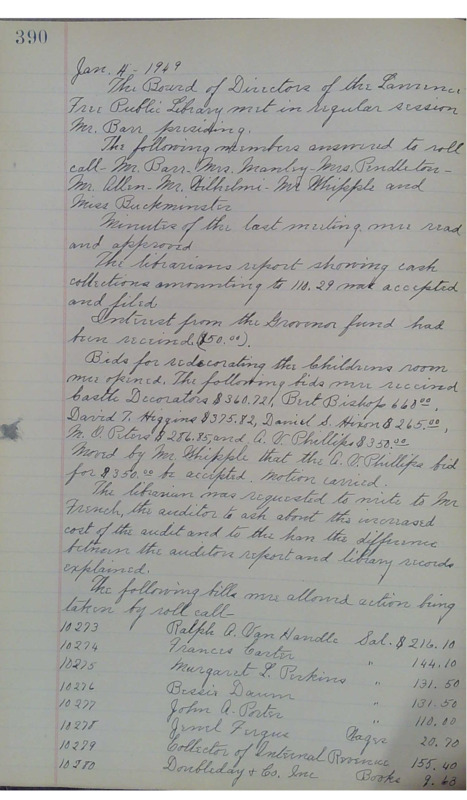 390
Jan. 4 - 1949
The Board of Directors of the Lawrence
Free Public Library met in regular session
Mr. Barr presiding.
The following members answered to roll
call - Mr. Barr - Mrs. Manley - Mrs. Pendleton -
Mr. Allen - Mr. Wilhelmi - Mr Whipple and
Miss Buckminster
Minutes of the last meeting were read
and approved
The librarians report showing cash
collections amounting to 110.29 was accepted
and filed.
Interest from the Grovenor fund had
been received ($50.00).
Bids for redecorating the Childrens room
were opened. The following bids were received
Castle Decorators $360.72, Bert Bishop 668.00,
David T. Higgins $375.82, Daniel S. Hixon $265.00,
M. O. Peters $286.85, and A. V. Phillips $350.00
Moved by Mr. Whipple that the A. V. Phillips bid
for $350.00 be accepted. Motion carried.
The librarian was requested to write to Mr
French, the auditor to ask about the increased
cost of the audit and to the han the difference
between the auditors report and library records
explained.
The following bills were allowed action being
taken by roll call -
10273 Ralph A. Van Handle Sal. $216.10
10274 Frances Carter " 144.10
10275 Margaret L. Perkins " 131.50
10276 Bessie Daum " 131.50
10277 John A. Porter " 110.00
10278 Jewel Fergus Wages 20.70
10279 Collector of Internal Revenue 155.40
10280 Doubleday & Co. Inc Books 9.63